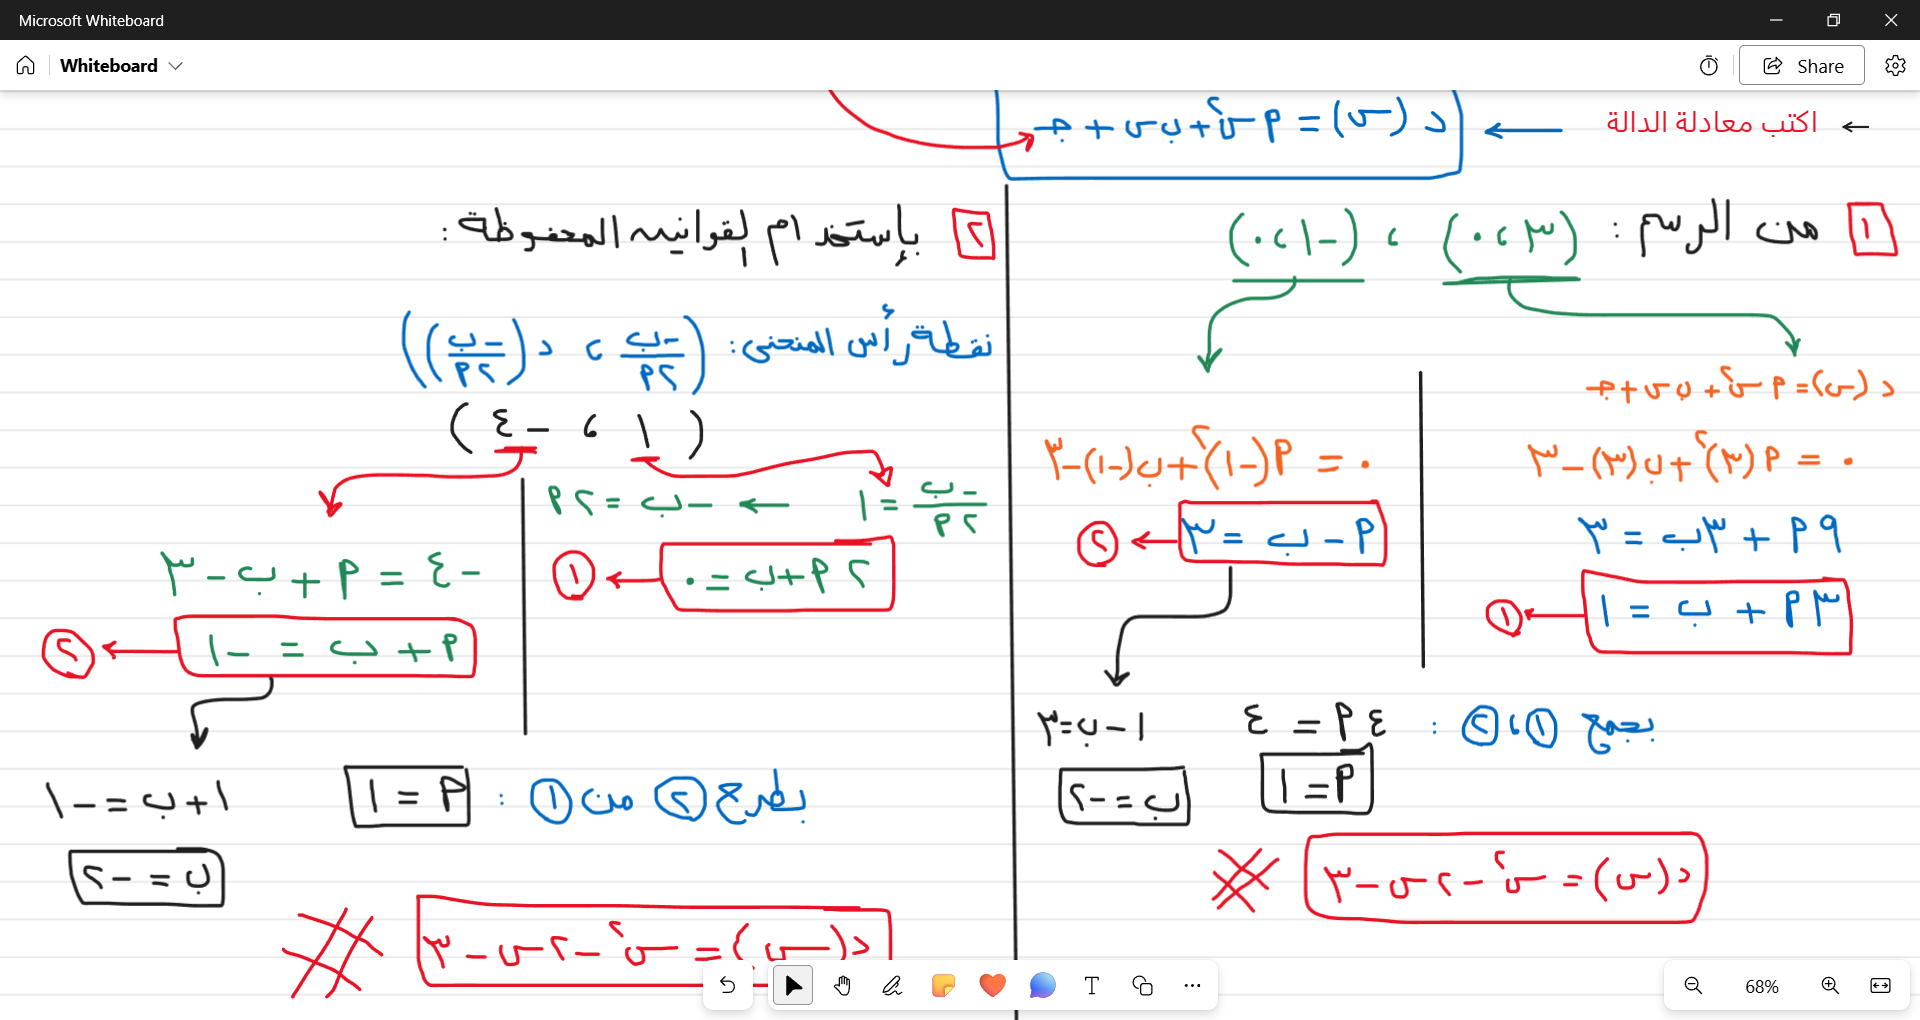 Microsoft Whiteboard
Whiteboard
Share
← اكتب معادلة الدالة ← د (س) = م س٢ + ب س + جـ
١ من الرسم : (٣ ، ٠) ، (-١ ، ٠)
د (س) = م س٢ + ب س + جـ
٠ = م (٣)٢ + ب (٣) - ٣
٩ م + ٣ ب = ٣
٣ م + ب = ١ ← ١
٠ = م (-١)٢ + ب (-١) - ٣
م - ب = ٣ ← ٢
بجمع ١ ، ٢ : ٤ م = ٤
م = ١
١ - ب = ٣
ب = -٢
د (س) = س٢ - ٢ س - ٣
٢ بإستخدام القوانين المحفوظة :
نقطة رأس المنحنى : (-ب/٢م ، د (-ب/٢م))
(١ ، -٤)
-ب/٢م = ١ ← -ب = ٢ م
٢ م + ب = ٠ ← ١
-٤ = م + ب - ٣
م + ب = -١ ← ٢
بطرح ٢ من ١ : م = ١
١ + ب = -١
ب = -٢
د (س) = س٢ - ٢ س - ٣
68%